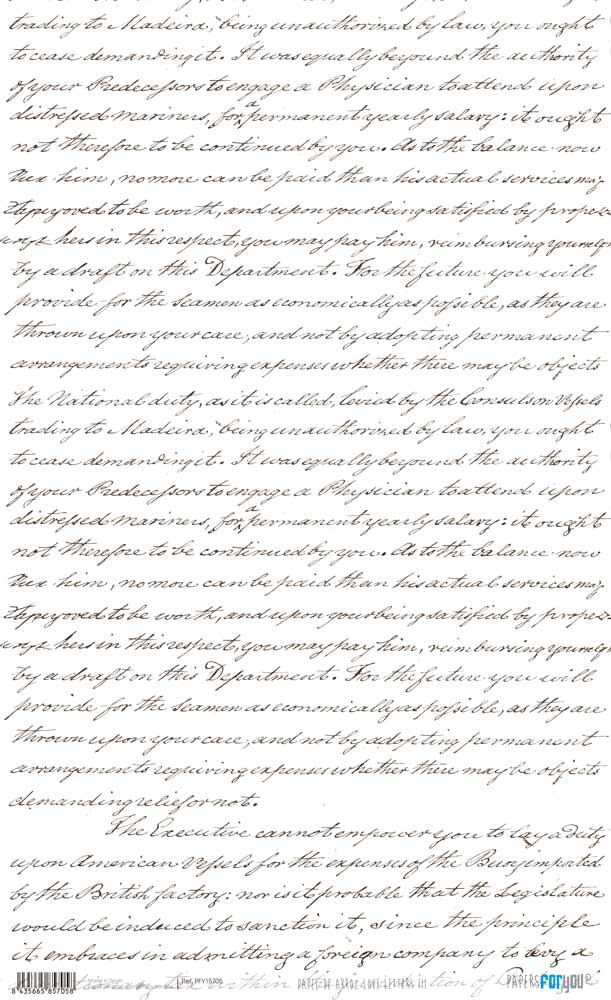 trading to Madeira, being unauthorized by law, you ought
to cease demanding it. It was equally beyound the authority
of your Predecessors to engage a Physician to attend upon
distressed mariners, for a permanent yearly salary: it ought
not therefore to be continued by you. As to the balance now
due him, no more can be paid than his actual services may
be proved to be worth, and upon your being satisfied by proper
vouchers in this respect, you may pay him, reimbursing yourself
by a draft on this Department. For the future you will
provide for the seamen as economically as possible, as they are
thrown upon your care, and not by adopting permanent
arrangements requiring expenses whether there may be objects
The National duty, as it is called, levied by the Consuls on Vessels
trading to Madeira, being unauthorized by law, you ought
to cease demanding it. It was equally beyound the authority
of your Predecessors to engage a Physician to attend upon
distressed mariners, for a permanent yearly salary: it ought
not therefore to be continued by you. As to the balance now
due him, no more can be paid than his actual services may
be proved to be worth, and upon your being satisfied by proper
vouchers in this respect, you may pay him, reimbursing yourself
by a draft on this Department. For the future you will
provide for the seamen as economically as possible, as they are
thrown upon your care, and not by adopting permanent
arrangements requiring expenses whether there may be objects
demanding relief or not.
The Executive cannot empower you to lay a duty
upon American Vessels for the expenses of the Buoy imported
by the British factory: nor is it probable that the Legislature
would be induced to sanction it, since the principle
it embraces in admitting a foreign company to levy a
tax within
8 435665 857058
Ref. PFY15705
PAPEL DE ARROZ LOVE LETTERS III
PAPERS FOR YOU®